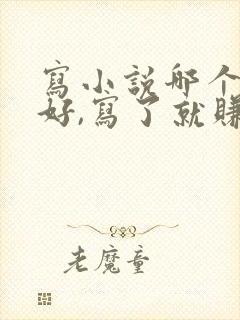 寫小説哪个
好,寫了就賺
老魔童